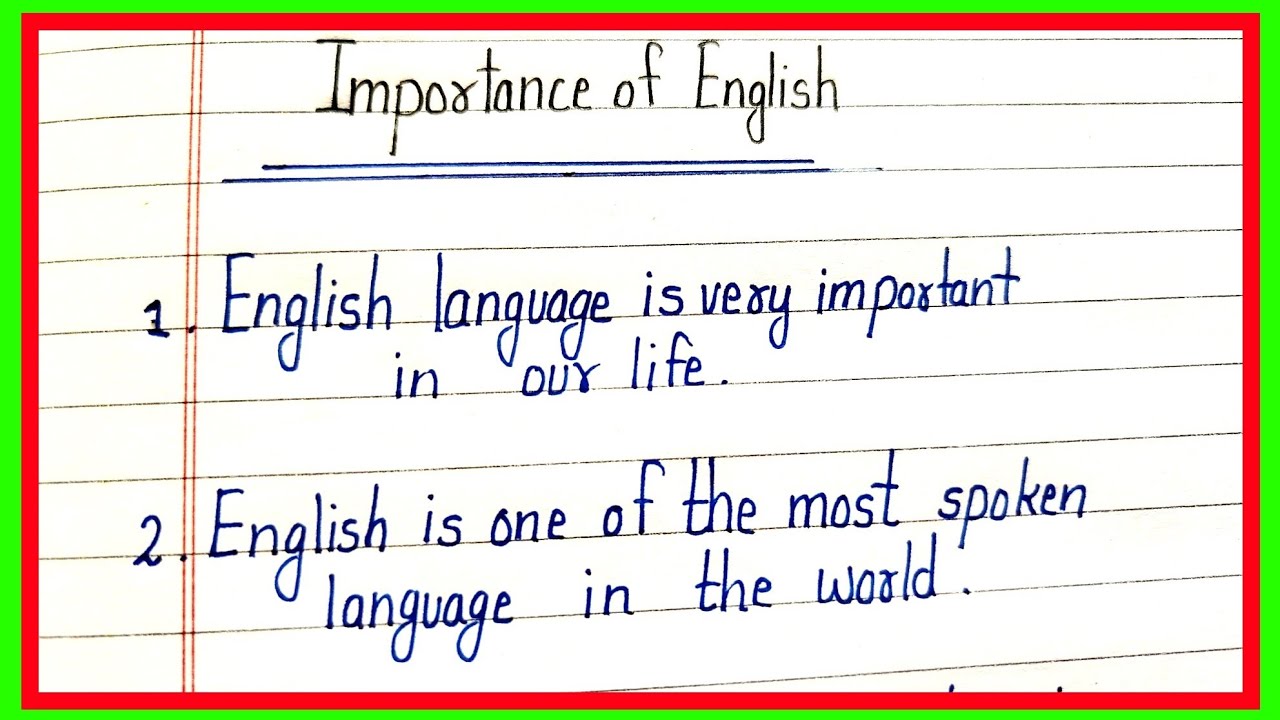 Importance of English
1. English language is very important
in our life.
2. English is one of the most spoken
language in the world.